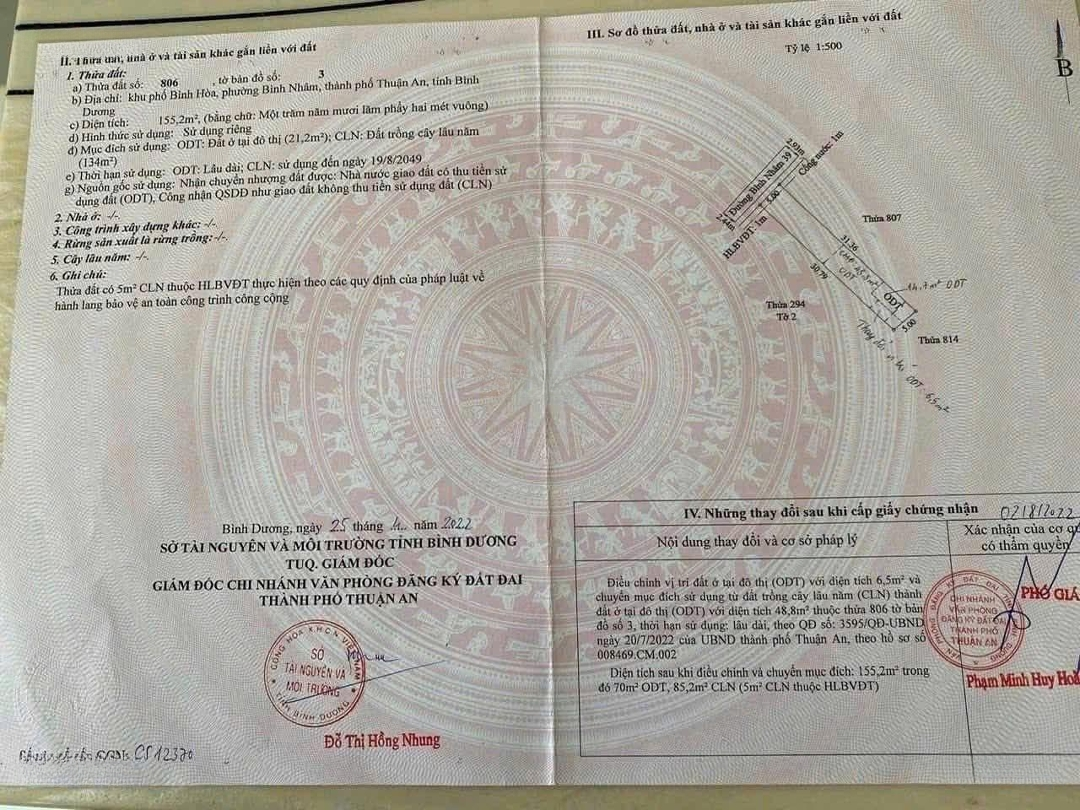 II. Thửa đất, nhà ở và tài sản khác gắn liền với đất
1. Thửa đất:
a) Thửa đất số: 806 , tờ bản đồ số: 3
b) Địa chỉ: khu phố Bình Hòa, phường Bình Nhâm, thành phố Thuận An, tỉnh Bình
Dương
c) Diện tích: 155,2m², (bằng chữ: Một trăm năm mươi lăm phẩy hai mét vuông)
d) Hình thức sử dụng: Sử dụng riêng
đ) Mục đích sử dụng: ODT: Đất ở tại đô thị (21,2m²); CLN: Đất trồng cây lâu năm
(134m²)
e) Thời hạn sử dụng: ODT: Lâu dài; CLN: sử dụng đến ngày 19/8/2049
g) Nguồn gốc sử dụng: Nhận chuyển nhượng đất được: Nhà nước giao đất có thu tiền sử
dụng đất (ODT), Công nhận QSDĐ như giao đất không thu tiền sử dụng đất (CLN)
2. Nhà ở: -/-.
3. Công trình xây dựng khác: -/-.
4. Rừng sản xuất là rừng trồng:-/-.
5. Cây lâu năm: -/-.
6. Ghi chú:
Thửa đất có 5m² CLN thuộc HLBVĐT thực hiện theo các quy định của pháp luật về
hành lang bảo vệ an toàn công trình công cộng
Bình Dương, ngày 25 tháng 4 năm 2022
SỞ TÀI NGUYÊN VÀ MÔI TRƯỜNG TỈNH BÌNH DƯƠNG
TUQ. GIÁM ĐỐC
GIÁM ĐỐC CHI NHÁNH VĂN PHÒNG ĐĂNG KÝ ĐẤT ĐAI
THÀNH PHỐ THUẬN AN
CỘNG HÒA XHCN VIỆT NAM
SỞ
TÀI NGUYÊN VÀ
MÔI TRƯỜNG
TỈNH BÌNH DƯƠNG
Đỗ Thị Hồng Nhung
CS12370
III. Sơ đồ thửa đất, nhà ở và tài sản khác gắn liền với đất
Tỷ lệ 1:500
B
2.93m
Cống nước: 1m
Đường Bình Nhâm 39
5.00
2.44m
HLBVĐT: 1m
Thửa 807
31.36
CLN 48,8m²
ODT
30.79
14,7m² ODT
ODT
Thửa 294
Tờ 2
5.00
Thửa 814
Thay đổi vị trí
ODT 6,5m²
IV. Những thay đổi sau khi cấp giấy chứng nhận
02/8/2022
Nội dung thay đổi và cơ sở pháp lý
Xác nhận của cơ q
có thẩm quyền
Điều chỉnh vị trí đất ở tại đô thị (ODT) với diện tích 6,5m² và
chuyển mục đích sử dụng từ đất trồng cây lâu năm (CLN) thành
đất ở tại đô thị (ODT) với diện tích 48,8m² thuộc thửa 806 tờ bản
đồ số 3, thời hạn sử dụng: lâu dài, theo QĐ số: 3595/QĐ-UBND
ngày 20/7/2022 của UBND thành phố Thuận An, theo hồ sơ số
008469.CM.002
Diện tích sau khi điều chỉnh và chuyển mục đích: 155,2m² trong
đó 70m² ODT, 85,2m² CLN (5m² CLN thuộc HLBVĐT)
PHÓ GIÁ
CHI NHÁNH
VĂN PHÒNG
ĐĂNG KÝ ĐẤT ĐAI
THÀNH PHỐ
THUẬN AN
Phạm Minh Huy Hoà